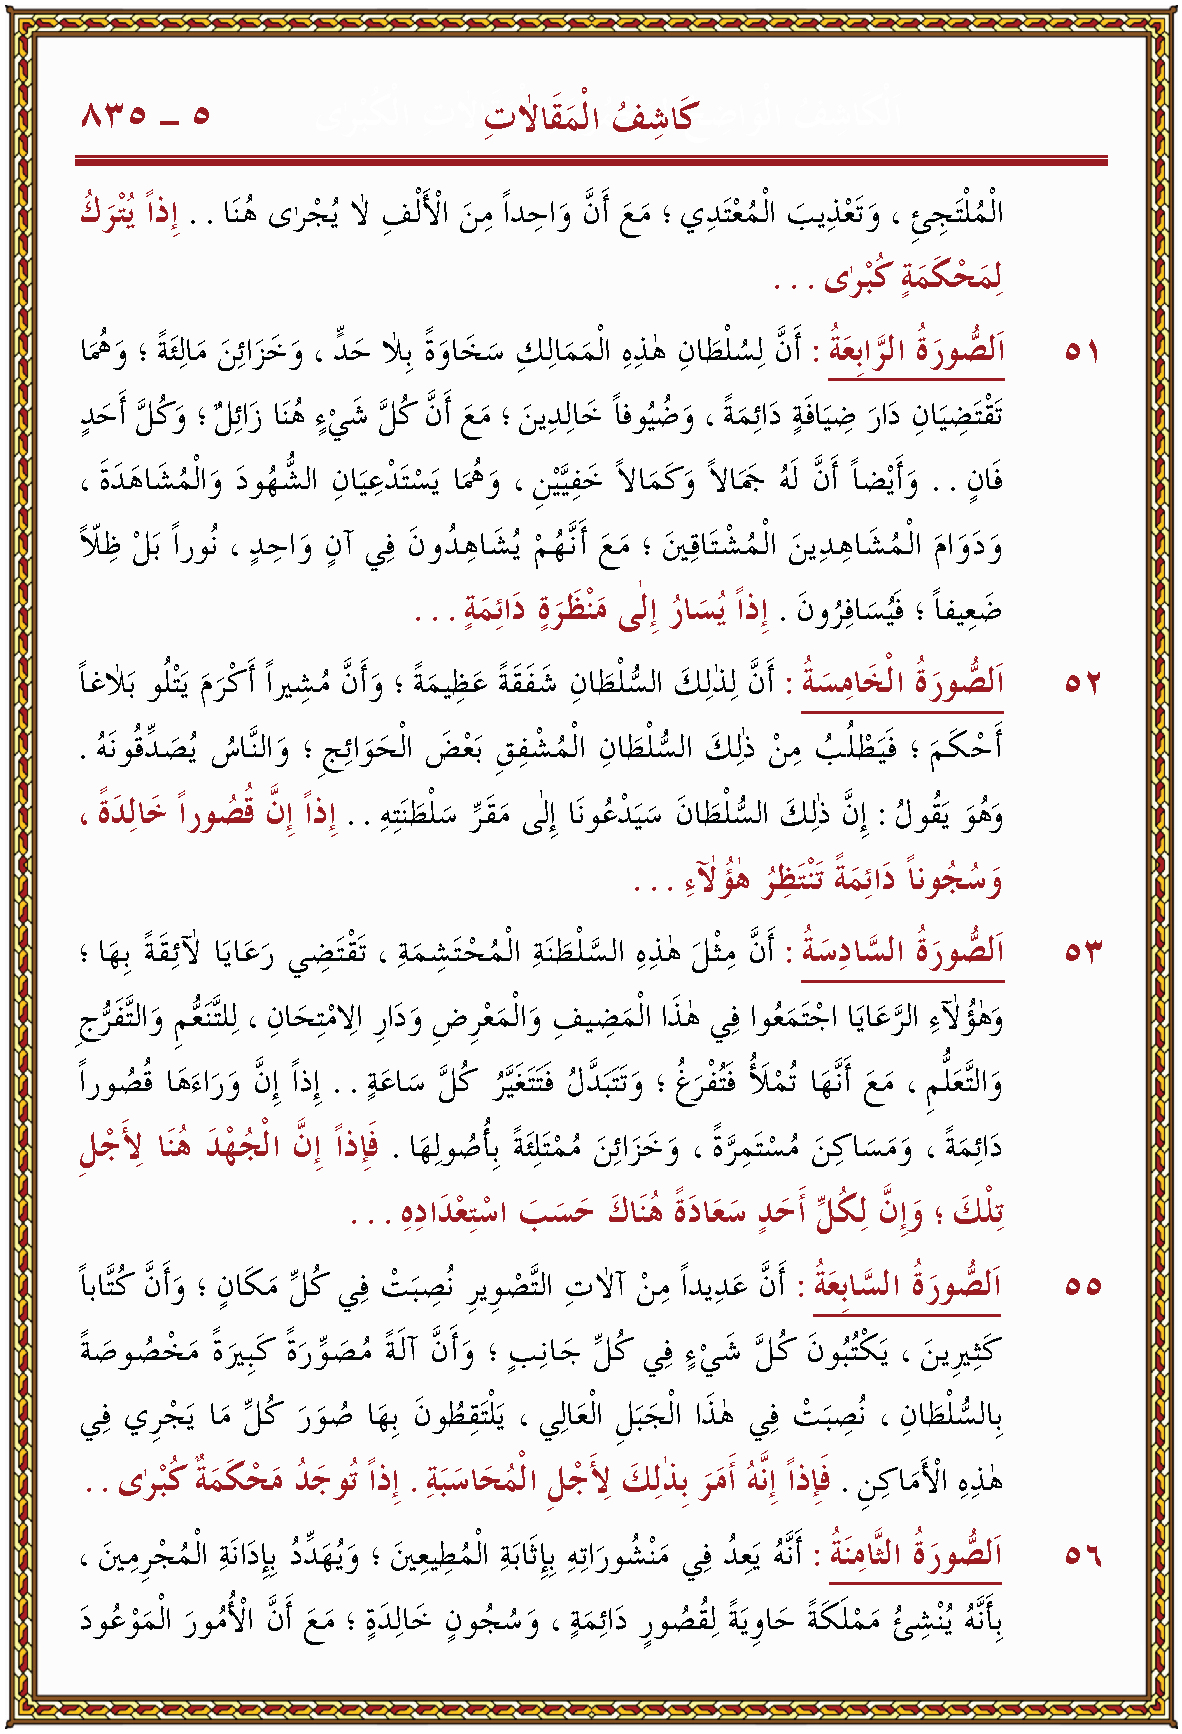 كَاشِفُ الْمَقَالَاتِ ٥ ــ ٨٣٥
الْمُلْتَجِئِ ، وَتَعْذِيبَ الْمُعْتَدِي ؛ مَعَ أَنَّ وَاحِداً مِنَ الْأَلْفِ لَا يُجْرٰى هُنَا . . إِذاً يُتْرَكُ
لِمَحْكَمَةٍ كُبْرٰى . . .
٥١ اَلصُّورَةُ الرَّابِعَةُ : أَنَّ لِسُلْطَانِ هٰذِهِ الْمَمَالِكِ سَخَاوَةً بِلَا حَدٍّ ، وَخَزَائِنَ مَالِئَةً ؛ وَهُمَا
تَقْتَضِيَانِ دَارَ ضِيَافَةٍ دَائِمَةً ، وَضُيُوفاً خَالِدِينَ ؛ مَعَ أَنَّ كُلَّ شَيْءٍ هُنَا زَائِلٌ ؛ وَكُلَّ أَحَدٍ
فَانٍ . . وَأَيْضاً أَنَّ لَهُ جَمَالاً وَكَمَالاً خَفِيَّيْنِ ، وَهُمَا يَسْتَدْعِيَانِ الشُّهُودَ وَالْمُشَاهَدَةَ ،
وَدَوَامَ الْمُشَاهِدِينَ الْمُشْتَاقِينَ ؛ مَعَ أَنَّهُمْ يُشَاهِدُونَ فِي آنٍ وَاحِدٍ ، نُوراً بَلْ ظِلّاً
ضَعِيفاً ؛ فَيُسَافِرُونَ . إِذاً يُسَارُ إِلٰى مَنْظَرَةٍ دَائِمَةٍ . . .
٥٢ اَلصُّورَةُ الْخَامِسَةُ : أَنَّ لِذٰلِكَ السُّلْطَانِ شَفَقَةً عَظِيمَةً ؛ وَأَنَّ مُشِيراً أَكْرَمَ يَتْلُو بَلَاغاً
أَحْكَمَ ؛ فَيَطْلُبُ مِنْ ذٰلِكَ السُّلْطَانِ الْمُشْفِقِ بَعْضَ الْحَوَائِجِ ؛ وَالنَّاسُ يُصَدِّقُونَهُ .
وَهُوَ يَقُولُ : إِنَّ ذٰلِكَ السُّلْطَانَ سَيَدْعُونَا إِلٰى مَقَرِّ سَلْطَنَتِهِ . . إِذاً إِنَّ قُصُوراً خَالِدَةً ،
وَسُجُوناً دَائِمَةً تَنْتَظِرُ هٰؤُلَآءِ . . .
٥٣ اَلصُّورَةُ السَّادِسَةُ : أَنَّ مِثْلَ هٰذِهِ السَّلْطَنَةِ الْمُحْتَشِمَةِ ، تَقْتَضِي رَعَايَا لَآئِقَةً بِهَا ؛
وَهٰؤُلَآءِ الرَّعَايَا اجْتَمَعُوا فِي هٰذَا الْمَضِيفِ وَالْمَعْرِضِ وَدَارِ الِامْتِحَانِ ، لِلتَّنَعُّمِ وَالتَّفَرُّجِ
وَالتَّعَلُّمِ ، مَعَ أَنَّهَا تُمْلَأُ فَتُفْرَغُ ؛ وَتَتَبَدَّلُ فَتَتَغَيَّرُ كُلَّ سَاعَةٍ . . إِذاً إِنَّ وَرَاءَهَا قُصُوراً
دَائِمَةً ، وَمَسَاكِنَ مُسْتَمِرَّةً ، وَخَزَائِنَ مُمْتَلِئَةً بِأُصُولِهَا . فَإِذاً إِنَّ الْجُهْدَ هُنَا لِأَجْلِ
تِلْكَ ؛ وَإِنَّ لِكُلِّ أَحَدٍ سَعَادَةً هُنَاكَ حَسَبَ اسْتِعْدَادِهِ . . .
٥٥ اَلصُّورَةُ السَّابِعَةُ : أَنَّ عَدِيداً مِنْ آلَاتِ التَّصْوِيرِ نُصِبَتْ فِي كُلِّ مَكَانٍ ؛ وَأَنَّ كُتَّاباً
كَثِيرِينَ ، يَكْتُبُونَ كُلَّ شَيْءٍ فِي كُلِّ جَانِبٍ ؛ وَأَنَّ آلَةً مُصَوِّرَةً كَبِيرَةً مَخْصُوصَةً
بِالسُّلْطَانِ ، نُصِبَتْ فِي هٰذَا الْجَبَلِ الْعَالِي ، يَلْتَقِطُونَ بِهَا صُوَرَ كُلِّ مَا يَجْرِي فِي
هٰذِهِ الْأَمَاكِنِ . فَإِذاً إِنَّهُ أَمَرَ بِذٰلِكَ لِأَجْلِ الْمُحَاسَبَةِ . إِذاً تُوجَدُ مَحْكَمَةٌ كُبْرٰى . .
٥٦ اَلصُّورَةُ الثَّامِنَةُ : أَنَّهُ يَعِدُ فِي مَنْشُورَاتِهِ بِإِثَابَةِ الْمُطِيعِينَ ؛ وَيُهَدِّدُ بِإِدَانَةِ الْمُجْرِمِينَ ،
بِأَنَّهُ يُنْشِئُ مَمْلَكَةً حَاوِيَةً لِقُصُورٍ دَائِمَةٍ ، وَسُجُونٍ خَالِدَةٍ ؛ مَعَ أَنَّ الْأُمُورَ الْمَوْعُودَ